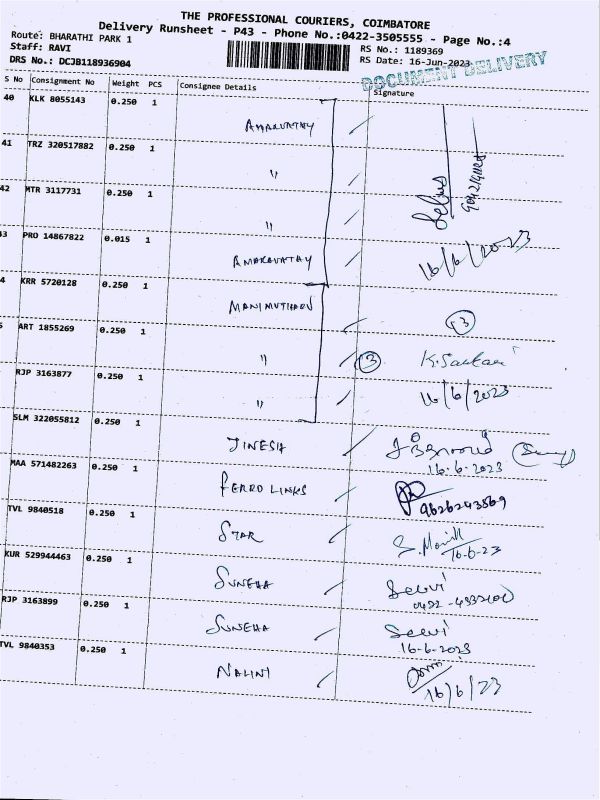 THE PROFESSIONAL COURIERS, COIMBATORE
Delivery Runsheet - P43 - Phone No.:0422-3505555 - Page No.:4
Route: BHARATHI PARK 1
Staff: RAVI
RS No.: 1189369
DRS No.: DCJB118936904
RS Date: 16-Jun-2023
DOCUMENT DELIVERY
S No Consignment No Weight PCS Consignee Details Signature
40 KLK 8055143 0.250 1 AMARAVATHY
41 TRZ 320517882 0.250 1 "
42 MTR 3117731 0.250 1 "
3 PRO 14867822 0.015 1 AMARAVATHY 16/6/2023
4 KRR 5720128 0.250 1 MANIMUTHARU 3
5 ART 1855269 0.250 1 " 3 K. Sankari
RJP 3163877 0.250 1 " 16/6/2023
SLM 322055812 0.250 1 JINESH
16-6-2023
MAA 571482263 0.250 1 FERRO LINKS 9626243569
TVL 9840518 0.250 1 STAR
16-6-23
KUR 529944463 0.250 1 SUNEHA Selvi
RJP 3163899 0.250 1 SUNEHA Selvi
16-6-2023
TVL 9840353 0.250 1 NALINI
16/6/23